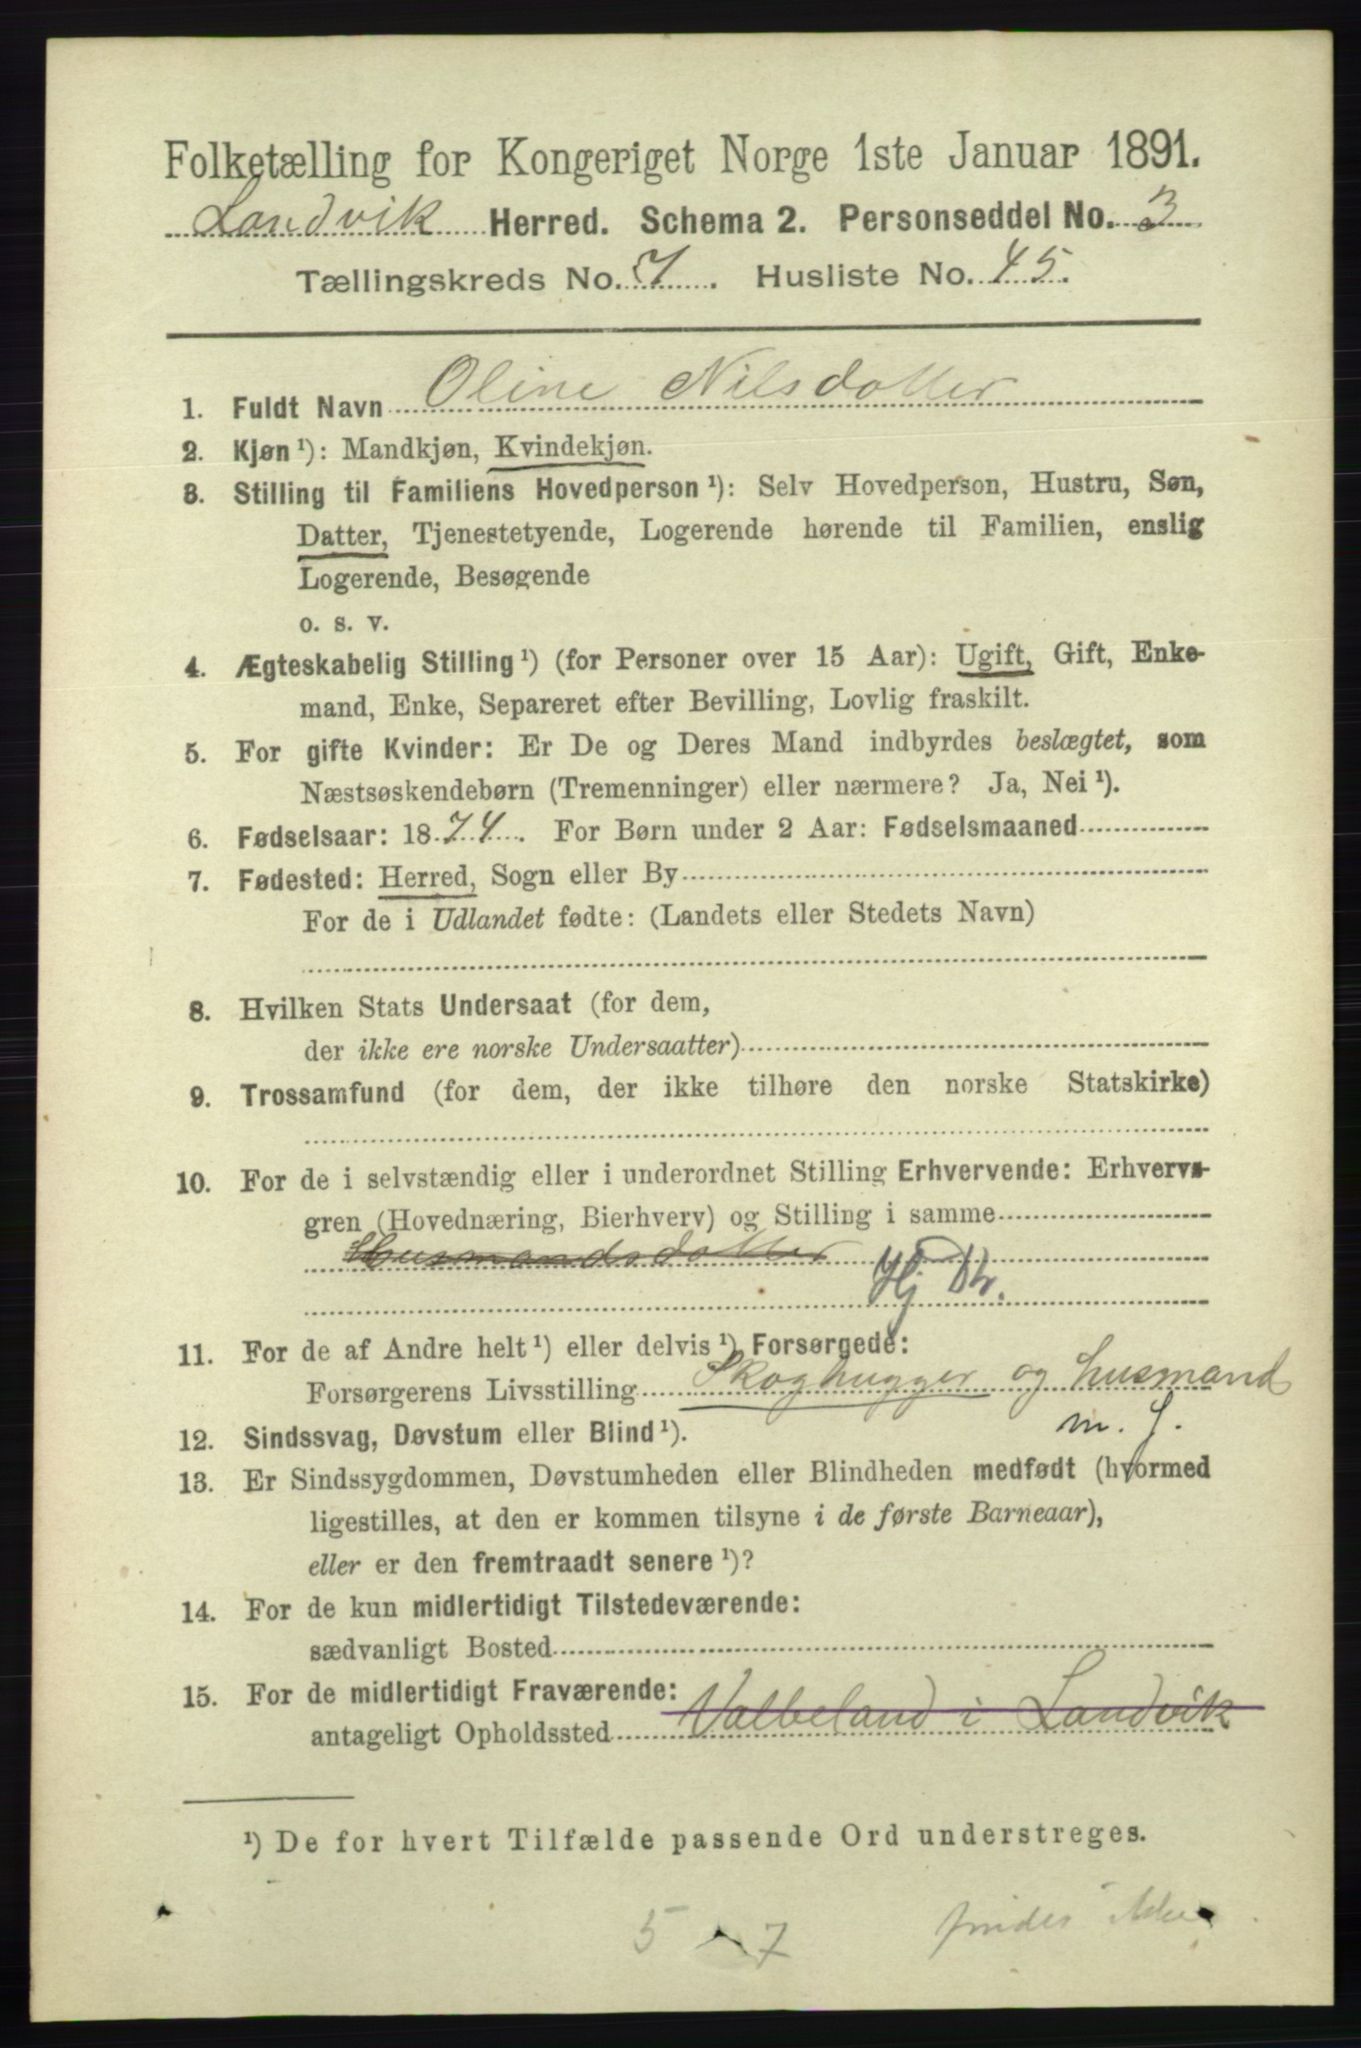 Folketælling for Kongeriget Norge 1ste Januar 1891.
Landvik Herred. Schema 2. Personseddel No. 3
Tællingskreds No. 7. Husliste No. 45.
1. Fuldt Navn Oline Nilsdotter
2. Kjøn ¹): Mandkjøn, Kvindekjøn.
3. Stilling til Familiens Hovedperson ¹): Selv Hovedperson, Hustru, Søn,
Datter, Tjenestetyende, Logerende hørende til Familien, enslig
Logerende, Besøgende
o. s. v.
4. Ægteskabelig Stilling ¹) (for Personer over 15 Aar): Ugift, Gift, Enke-
mand, Enke, Separeret efter Bevilling, Lovlig fraskilt.
5. For gifte Kvinder: Er De og Deres Mand indbyrdes beslægtet, som
Næstsøskendebørn (Tremenninger) eller nærmere? Ja, Nei ¹).
6. Fødselsaar: 1874. For Børn under 2 Aar: Fødselsmaaned
7. Fødested: Herred, Sogn eller By
For de i Udlandet fødte: (Landets eller Stedets Navn)
8. Hvilken Stats Undersaat (for dem,
der ikke ere norske Undersaatter)
9. Trossamfund (for dem, der ikke tilhøre den norske Statskirke)
10. For de i selvstændig eller i underordnet Stilling Erhvervende: Erhvervs-
gren (Hovednæring, Bierhverv) og Stilling i samme
Husmandsdotter
Hj Dtr.
11. For de af Andre helt ¹) eller delvis ¹) Forsørgede:
Forsørgerens Livsstilling Skoghugger og husmand
m. J.
12. Sindssvag, Døvstum eller Blind ¹).
13. Er Sindssygdommen, Døvstumheden eller Blindheden medfødt (hvormed
ligestilles, at den er kommen tilsyne i de første Barneaar),
eller er den fremtraadt senere ¹)?
14. For de kun midlertidigt Tilstedeværende:
sædvanligt Bosted
15. For de midlertidigt Fraværende:
antageligt Opholdssted Valbeland i Landvik
¹) De for hvert Tilfælde passende Ord understreges.
5 7 findes ikke